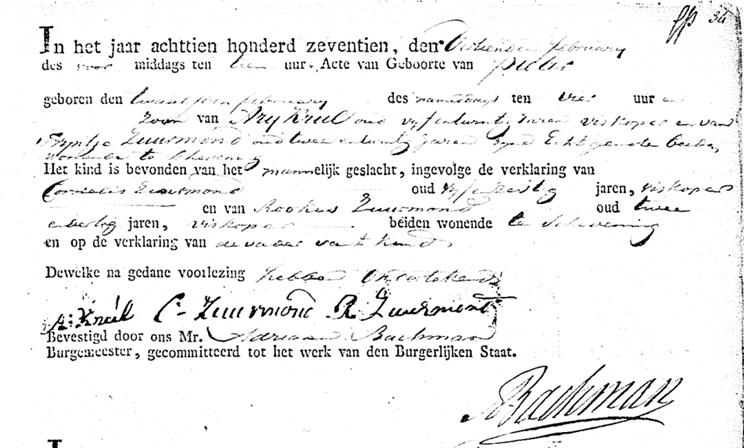 gp 34
In het jaar achttien honderd zeventien, den Veertienden february
des voor middags ten tien uur Acte van Geboorte van pieter
geboren den twaalfden february des namiddags ten vier uur en
Zoon van Ary Krul oud vyf en twintig Jaren viskoper en van
Fyntje Zuurmond oud twee en twintig jaren zyne Echtgenote beiden
wonende te Schevening
Het kind is bevonden van het mannelijk geslacht, ingevolge de verklaring van
Cornelis Zuurmond oud vyf en zestig jaren, viskoper
en van Rookus Zuurmond oud twee
en dertig jaren, viskoper beiden wonende te Schevening
en op de verklaring van de vader van t kind
Dewelke na gedane voorlezing hebben onderteekend
A: Krul C- Zuurmond R Zuurmont
Bevestigd door ons Mr. Adriaan Bachman
Burgemeester, gecommitteerd tot het werk van den Burgerlijken Staat.
A Bachman